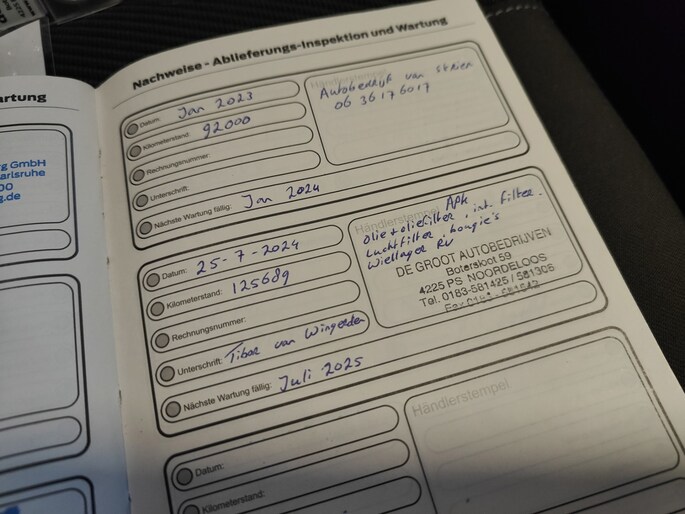 artung
rg GmbH
arlsruhe
00
g.de
Nachweise - Ablieferungs-Inspektion und Wartung
Datum: Jan 2023
Kilometerstand: 92000
Rechnungsnummer:
Unterschrift:
Nächste Wartung fällig: Jan 2024
Händlerstempel
Autobedrijf van Strien
06 36176017
Datum: 25-7-2024
Kilometerstand: 125689
Rechnungsnummer:
Unterschrift: Tibor van Wingerden
Nächste Wartung fällig: Juli 2025
Händlerstempel APK
olie + oliefilter, int. filter.
Luchtfilter, bougie's
Wiellager RV
DE GROOT AUTOBEDRIJVEN
Botersloot 59
4225 PS NOORDELOOS
Tel. 0183-581425 / 581306
Fax 0183 - 581642
Datum:
Kilometerstand:
Händlerstempel